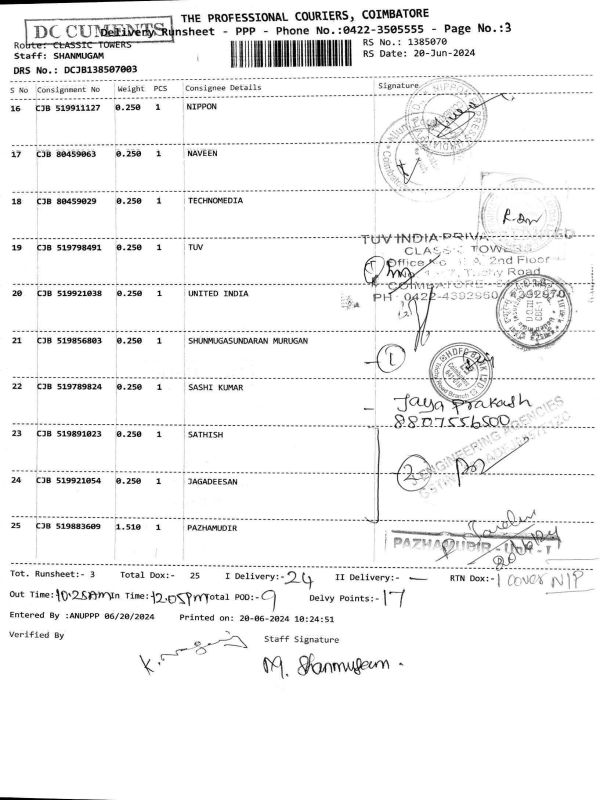 THE PROFESSIONAL COURIERS, COIMBATORE
DOCUMENTS Delivery Runsheet - PPP - Phone No.:0422-3505555 - Page No.:3
Route: CLASSIC TOWERS
RS No.: 1385070
Staff: SHANMUGAM
RS Date: 20-Jun-2024
DRS No.: DCJB138507003
S No Consignment No Weight PCS Consignee Details Signature
16 CJB 519911127 0.250 1 NIPPON
17 CJB 80459063 0.250 1 NAVEEN
18 CJB 80459029 0.250 1 TECHNOMEDIA
19 CJB 519798491 0.250 1 TUV
TUV INDIA PRIVATE LIMITED
CLASSIC TOWERS
Office No. 2nd Floor
Trichy Road
COIMBATORE
20 CJB 519921038 0.250 1 UNITED INDIA
21 CJB 519856803 0.250 1 SHUNMUGASUNDARAN MURUGAN
1
HDFC BANK LTD
22 CJB 519789824 0.250 1 SASHI KUMAR
- Jaya Prakash
8807556500
23 CJB 519891023 0.250 1 SATHISH
ENGINEERING AGENCIES
2
24 CJB 519921054 0.250 1 JAGADEESAN
25 CJB 519883609 1.510 1 PAZHAMUDIR
PAZHAMUDIR - UNIT - I
Tot. Runsheet:- 3 Total Dox:- 25 I Delivery:- 24 II Delivery:- — RTN Dox:- 1 cover NIP
Out Time: 10:25AM In Time: 12.05PM Total POD:- 9 Delvy Points:- 17
Entered By :ANUPPP 06/20/2024 Printed on: 20-06-2024 10:24:51
Verified By Staff Signature
M. Shanmugam.